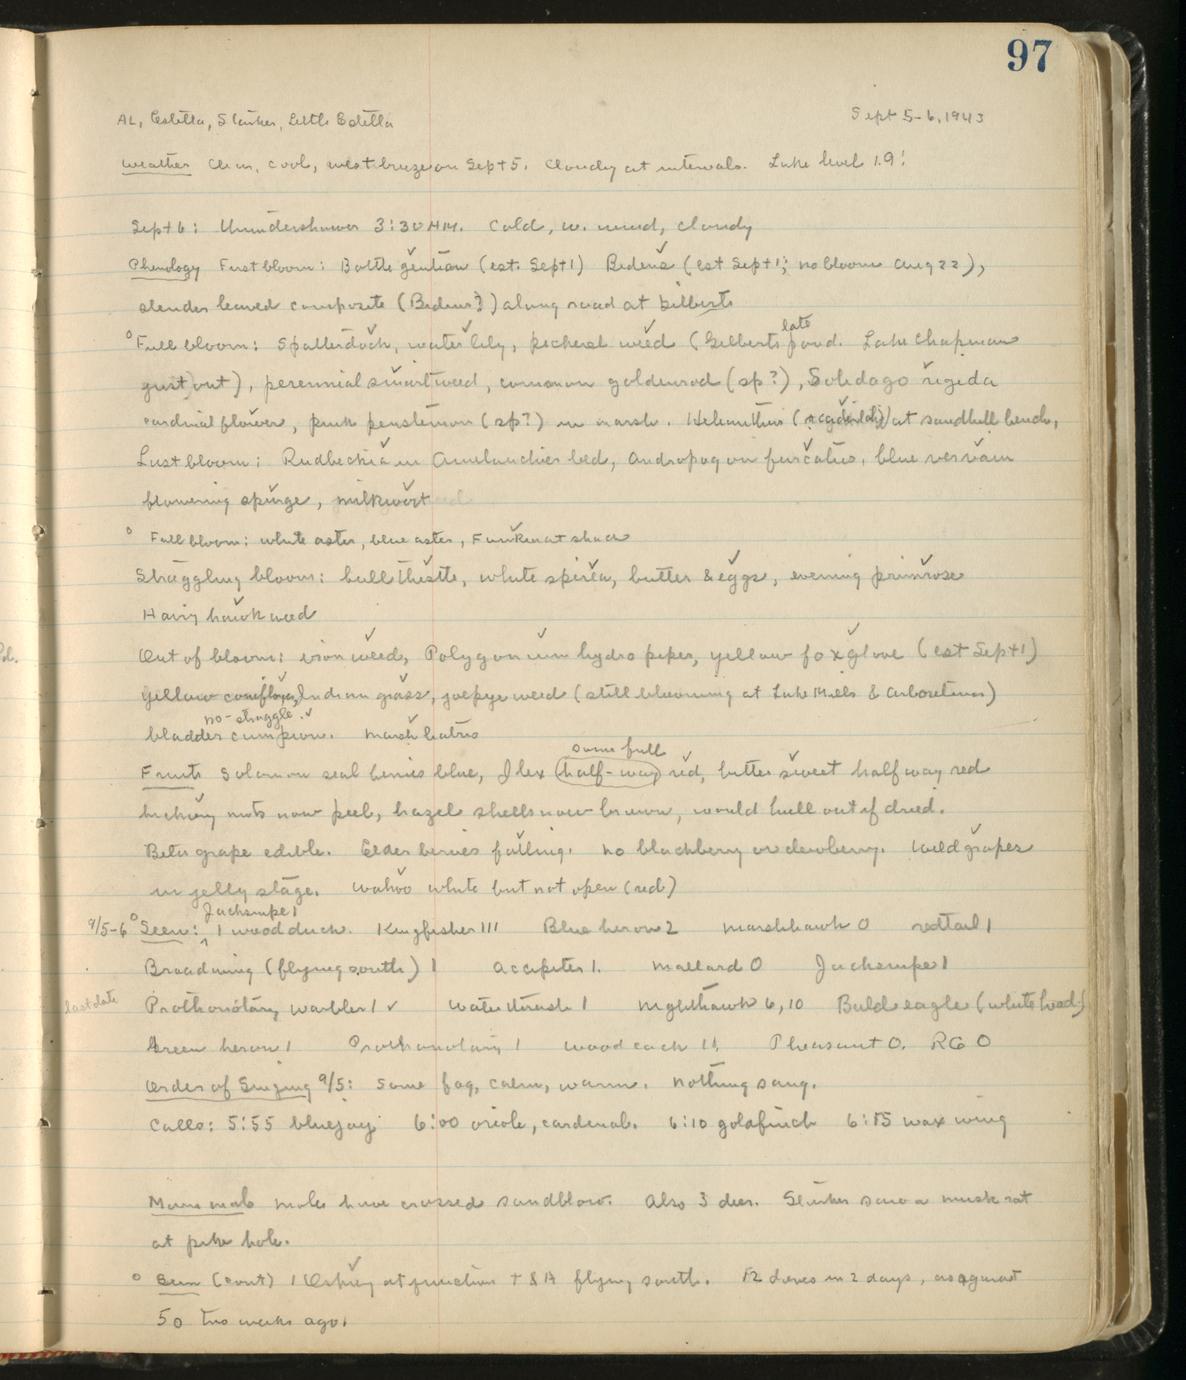 97
AL, Estella, Starker, Little Estella Sept 5-6, 1943
Weather Clear, cool, west breeze on Sept 5. Cloudy at intervals. Lake level 1.9'
Sept 6: Thundershower 3:30 AM. Cold, w. wind, cloudy
Phenology First bloom: Bottle gentian (est. Sept 1) Bidens (est Sept 1; no bloom Aug 22),
slender leaved composite (Bidens?) along road at Gilberts
Full bloom: Spatterdock, water lily, pickerel weed (Gilberts late pond. Lake Chapman
just out), perennial smartweed, common goldenrod (sp?), Solidago rigida
cardinal flower, pink penstemon (sp?) in marsh. Helianthus at sandhill bench,
Last bloom: Rudbeckia in Amelanchier bed, Andropogon furcatus, blue vervain
flowering spurge, milkwort
Full bloom: white aster, blue aster, Funkia at shack
Straggling bloom: bull thistle, white spirea, butter & eggs, evening primrose
Hairy hawkweed
Out of bloom: iron weed, Polygonum hydropiper, yellow foxglove (est Sept 1)
yellow coneflower, Indian grass, joepye weed (still blooming at Lake Mills & Arboretum)
no - straggle.
bladder campion. Marsh liatris
some full
Fruits Solomon seal berries blue, Ilex (half-way) red, bittersweet half way red
hickory nuts now peel, hazel shells now brown, would hull out if dried.
Beta grape edible. Elderberries falling. No blackberry or dewberry. Wild grapes
in jelly stage. Wahoo white but not open (red)
Jacksnipe 1
9/5-6 Seen: 1 wood duck. Kingfisher 111 Blue heron 2 Marshhawk 0 redtail 1
Broadwing (flying south) 1 accipiter 1. mallard 0 Jacksnipe 1
last date Prothonotary warbler 1 water thrush 1 nighthawk 6, 10 Bald eagle (white head)
Green heron 1 Prothonotary 1 woodcock 11, Pheasant 0. RG 0
Order of Singing 9/5: Some fog, calm, warm. Nothing sang.
Calls: 5:55 bluejay 6:00 oriole, cardinal. 6:10 goldfinch 6:15 waxwing
Mammals moles have crossed sandblow. Also 3 deer. Starker saw a muskrat
at pike hole.
Seen (cont) 1 Osprey at junction T & A flying south. 12 doves in 2 days, as against
50 two weeks ago.